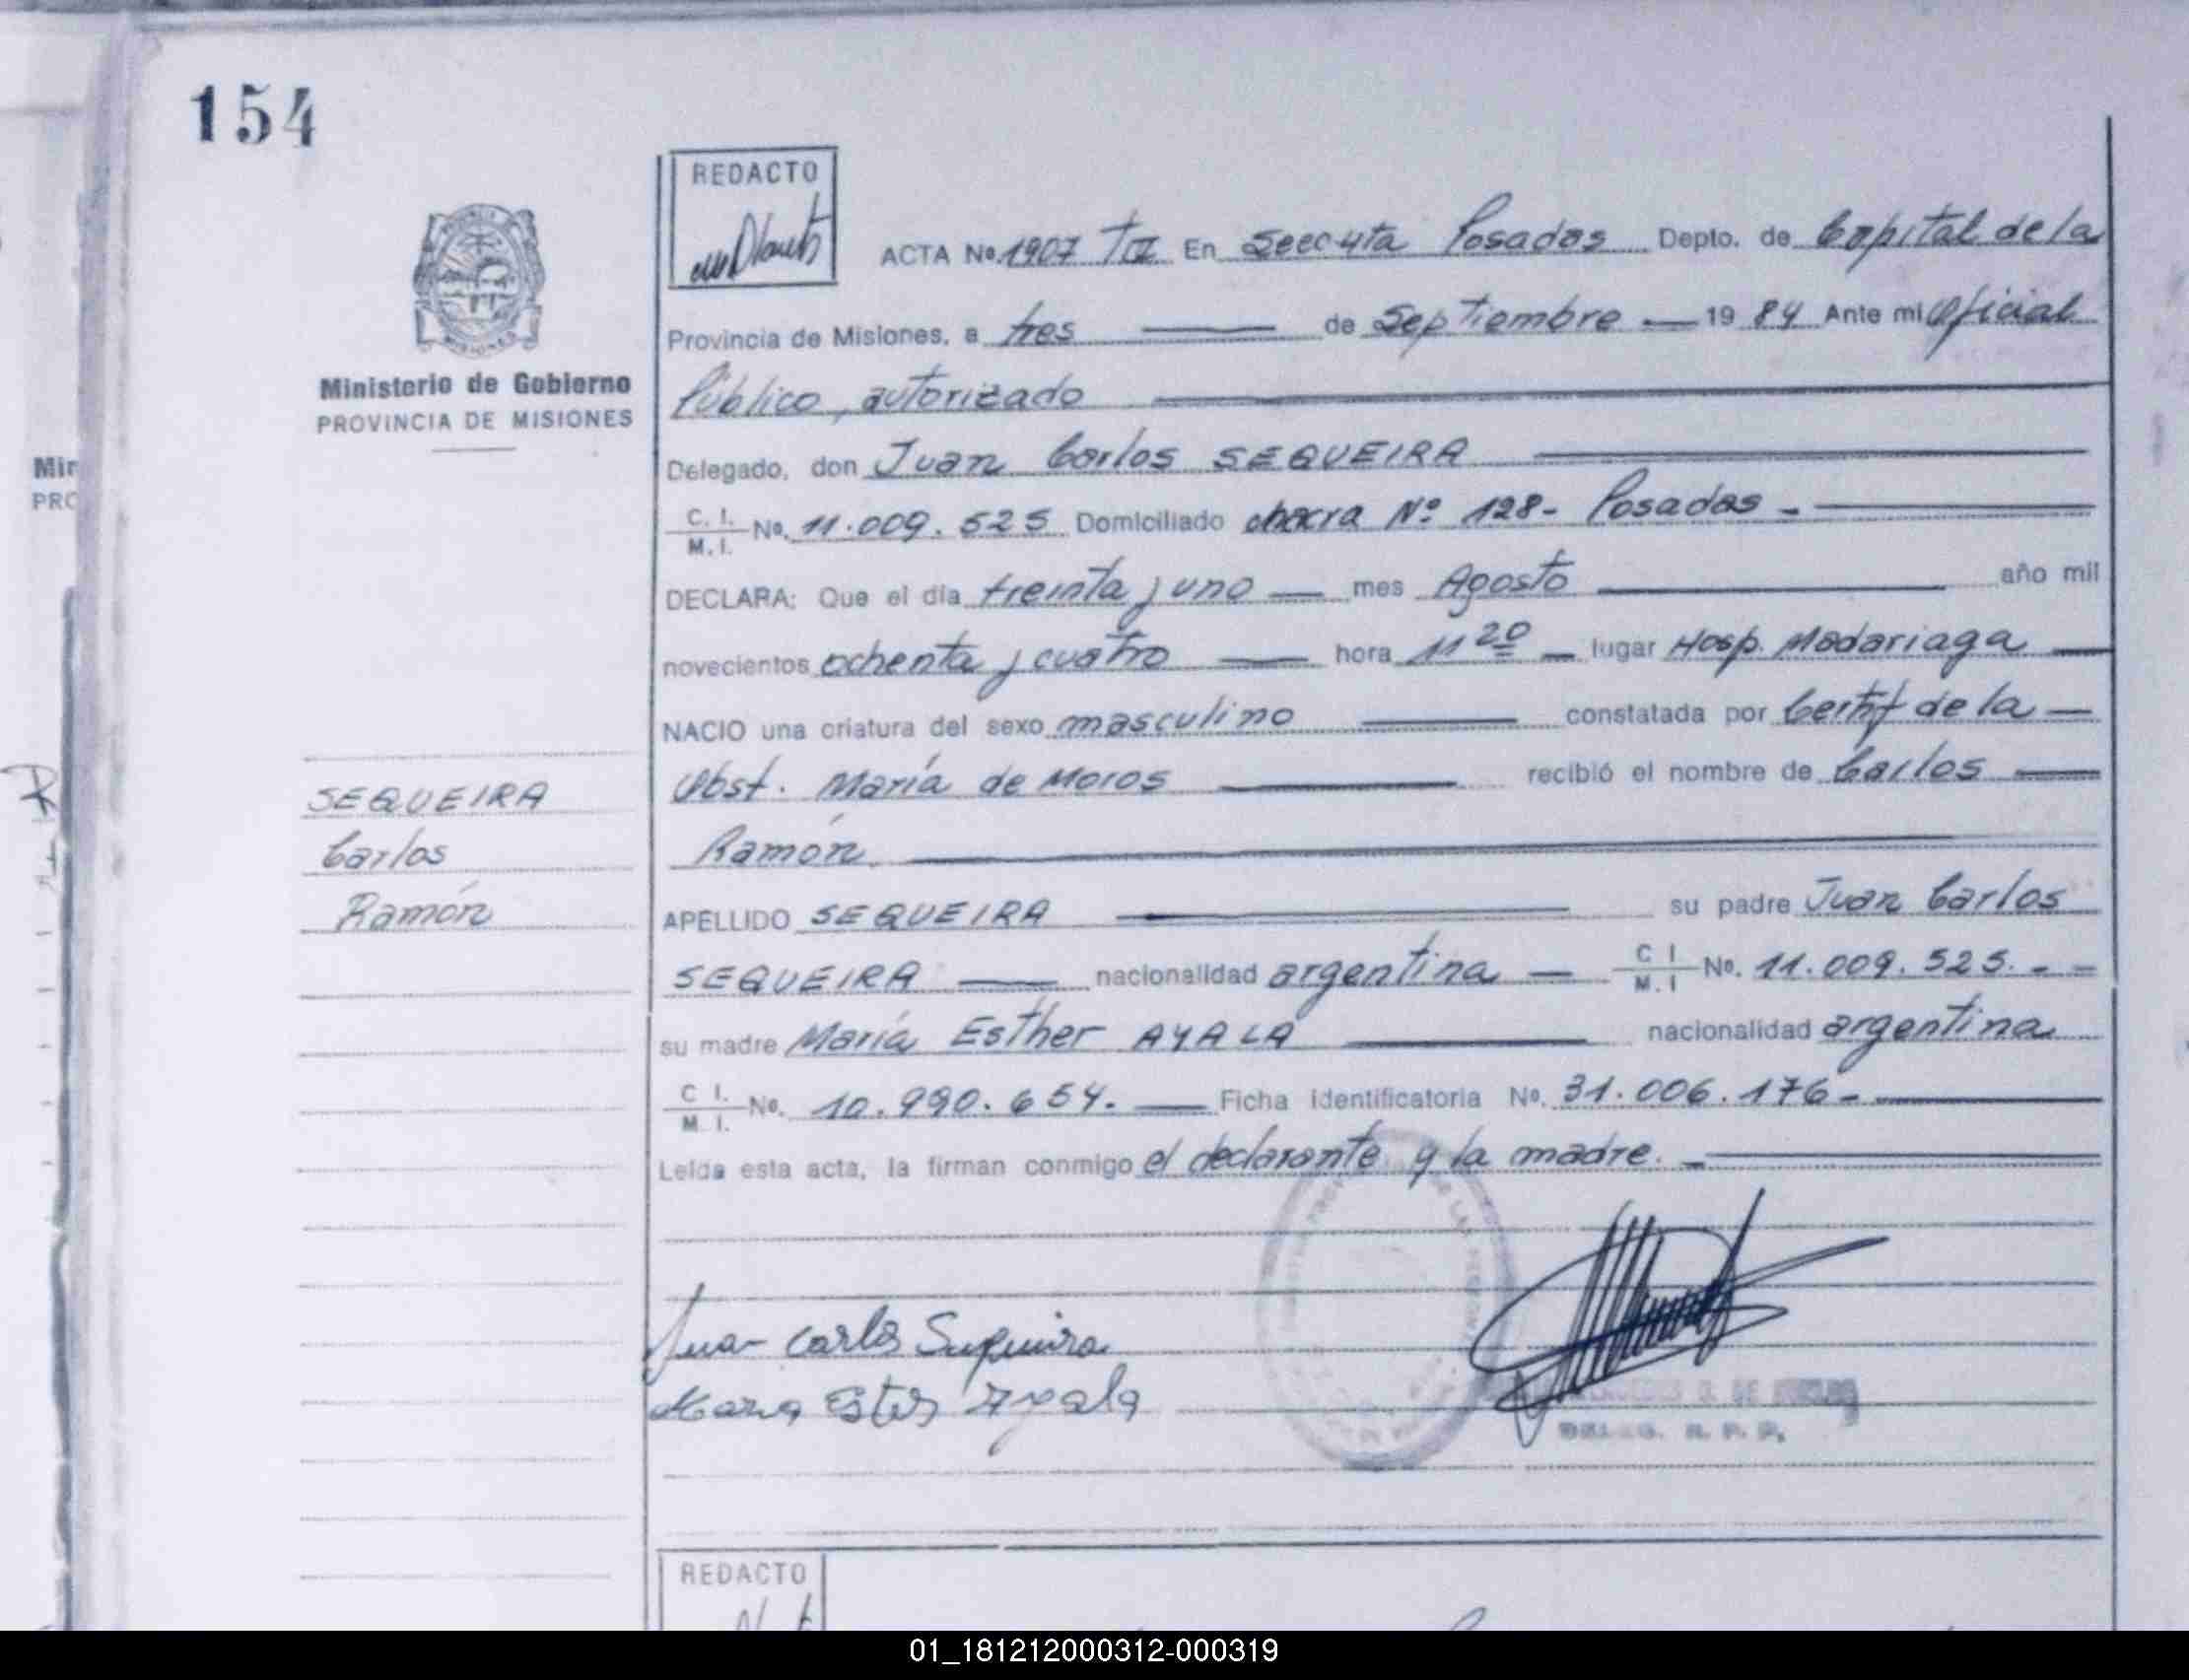 154
REDACTO
ACTA No. 1907 En Posadas Depto. de Capital de la
Ministerio de Gobierno
PROVINCIA DE MISIONES
Provincia de Misiones, a tres de Septiembre 19 84 Ante mi Oficial
Público, autorizado
Delegado, don Juan Carlos SEQUEIRA
C. I. M. I. No. 11.009.525 Domiciliado chacra Nº 128- Posadas -
DECLARA: Que el día treinta y uno mes Agosto año mil
novecientos ochenta y cuatro hora 11 20 lugar Hosp. Madariaga
NACIO una criatura del sexo masculino constatada por Certif de la
Obst. María de Moros recibió el nombre de Carlos
Ramón
SEQUEIRA
Carlos
Ramón
APELLIDO SEQUEIRA su padre Juan Carlos
SEQUEIRA nacionalidad argentina C I M. I No. 11.009.525.--
su madre María Esther AYALA nacionalidad argentina
C I. M. I. No. 10.990.654. Ficha identificatoria No. 31.006.176-
Leída esta acta, la firman conmigo el declarante y la madre.
Juan Carlos Sequeira
Maria Ester Ayala
REDACTO
Mir
PRO
01_181212000312-000319